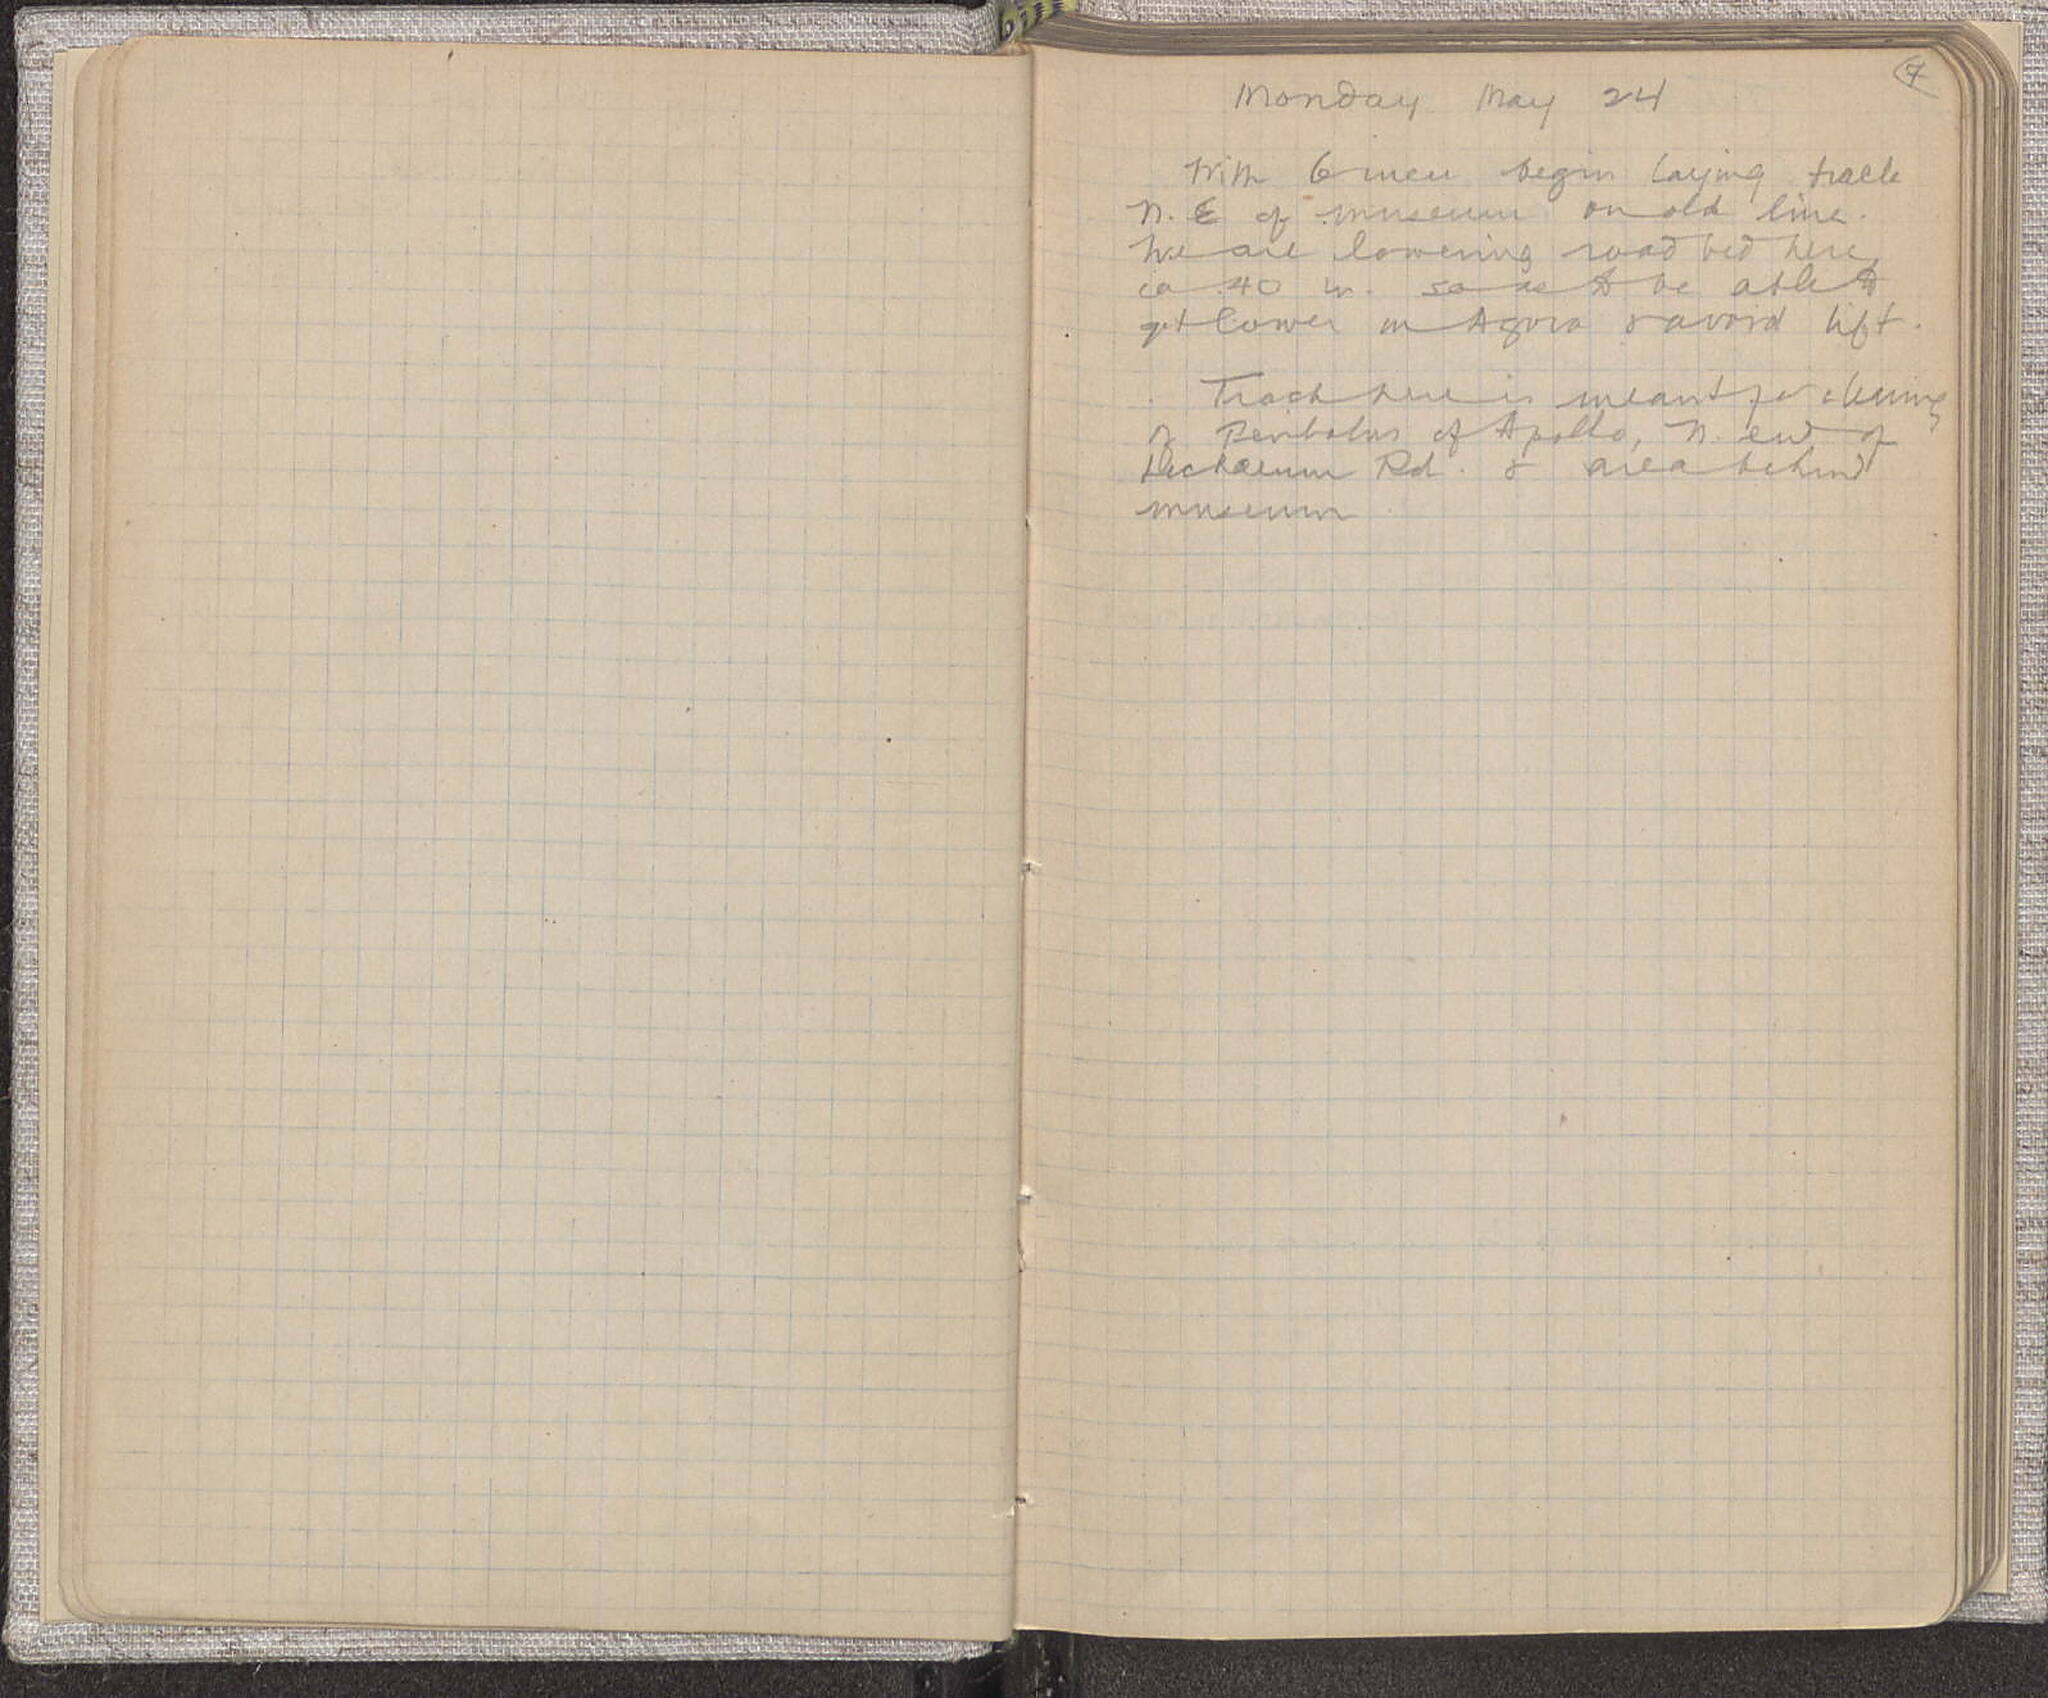 7
Monday May 24
With 6 men begin laying track
N. E of museum on old line.
We are lowering road bed here
ca .40 m. so as to be able to
get lower in Agora & avoid lift.
Track here is meant for clearing
of Peribolus of Apollo, N. end of
Lechaeum Rd. & area behind
museum